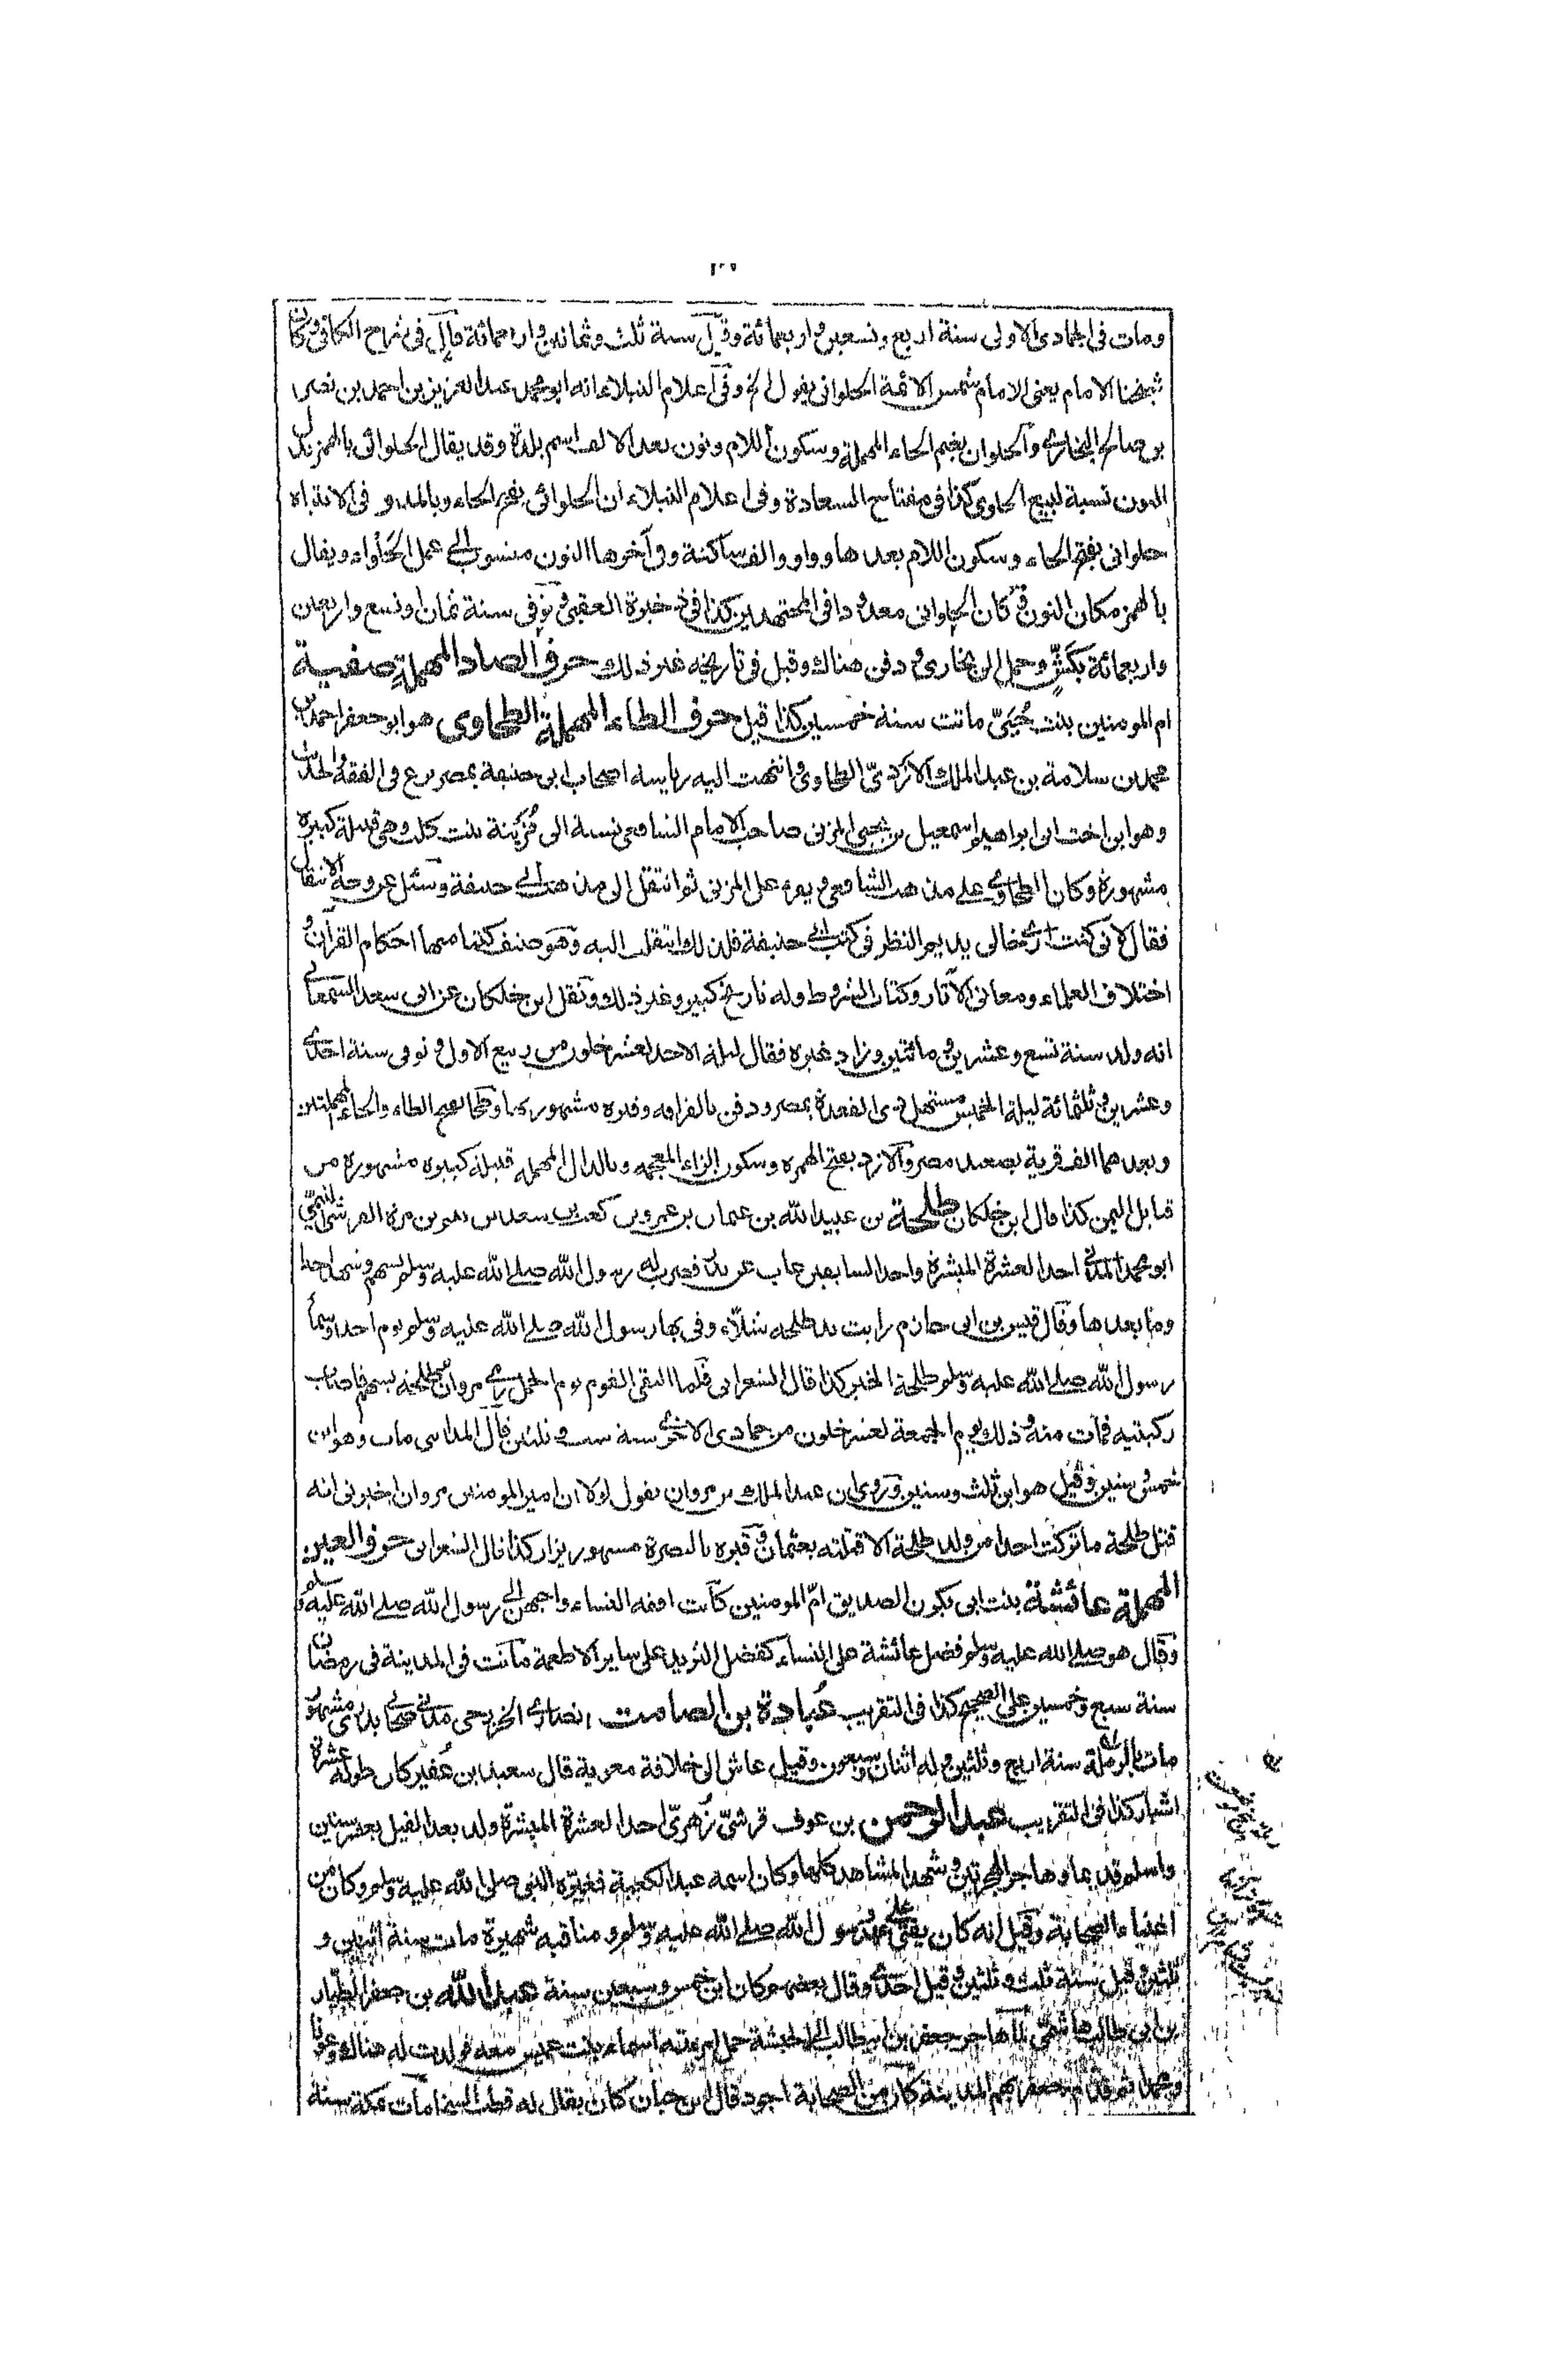 ومات فى الجمادى الاولى سنة اربع وتسعين واربعمائة وقيل سنة ثلث وثمانين واربعمائة قال فى شرح الكافى وكان
شيخنا الامام يعنى الامام شمس الائمة الحلوانى يقول الخ وفى اعلام النبلاء انه ابو محمد عبد العزيز بن احمد بن نصر
بن صالح البخارى والحلوان بضم الحاء المهملة وسكون اللام ونون بعد الالف اسم بلدة وقد يقال الحلوائى بالهمز بدل
النون نسبة لبيع الحلوى كذا فى مفتاح السعادة وفى اعلام النبلاء ان الحلوائى بفتح الحاء وبالمد و فى الانتباه
حلوانى بفتح الحاء وسكون اللام بعدها واو والف ساكنة وفى آخرها النون منسوب الى عمل الحَلْواء ويقال
بالهمز مكان النون كان الحلوانى معدودا فى المجتهدين كذا فى ذخيرة العقبى توفى سنة ثمان او تسع واربعين
واربعمائة بكَشّ وحمل الى بخارى ودفن هناك وقيل فى تاريخه غير ذلك حرف الصاد المهملة صفية
ام المومنين بنت حُيَىّ ماتت سنة خمسين كذا قيل حرف الطاء المهملة الطحاوى هو ابو جعفر احمد بن
محمد بن سلامة بن عبد الملك الازدىّ الطحاوى وانتهت اليه رياسة اصحاب ابى حنيفة بمصر برع فى الفقه والحديث
وهو ابن اخت ابى ابراهيم اسمعيل بن يحيى المزنى صاحب الامام الشافعى نسبة الى مُزَينة بنت كلب وهى قبيلة كبيرة
مشهورة وكان الطحاوى على مذهب الشافعى يقرء على المزنى ثم انتقل الى مذهب ابى حنيفة وسئل عن وجه الانتقال
فقال لانى كنت ارى خالى يديم النظر فى كتب ابى حنيفة فلذلك انتقلت اليه وهو صنف كتبا منها احكام القرآن و
اختلاف العلماء ومعانى الآثار وكتاب الشروط وله تاريخ كبير وغير ذلك ونقل ابن خلكان عن ابى سعد السمعانى
انه ولد سنة تسع وعشرين ومائتين وزاد غيره فقال ليلة الاحد لعشر خلون من ربيع الاول وتوفى سنة احدى
وعشرين وثلثمائة ليلة الخميس مستهل ذى القعدة بمصر ودفن بالقرافة وقبره مشهور بها وطحا بفتح الطاء والحاء المهملتين
وبعدهما الف قرية بصعيد مصر والازد بفتح الهمزة وسكون الزاء المعجمة وبالدال المهملة قبيلة كبيرة مشهورة من
قبايل اليمن كذا قال ابن خلكان طلحة بن عبيد الله بن عثمان بن عمرو بن كعب بن سعد بن تيم بن مرة القرشى التيمى
ابو محمد المدنى احد العشرة المبشرة واحد السابعين غاب عن بدر فضرب له رسول الله صلى الله عليه وسلم بسهم وشهد احدا
وما بعدها وقال قيس بن ابى حازم رايت يد طلحة شلّاء وقى بها رسول الله صلى الله عليه وسلم يوم احد وسمّا
رسول الله صلى الله عليه وسلم طلحة الخير كذا قال الشعرانى فلما التقى القوم يوم الجمل رمى مروان طلحة بسهم فاصاب
ركبتيه فمات منه وذلك يوم الجمعة لعشر خلون من جمادى الاخرى سنة ست وثلثين قال المدائنى مات وهو ابن
خمس وستين وقيل هو ابن ثلث وستين وروى ان عبد الملك بن مروان يقول لولا ان امير المومنين مروان اخبرنى انه
قتل طلحة ما تركت احدا من ولد طلحة الا قتلته بعثمان وقبره بالبصرة مشهور يزار كذا قال الشعرانى حرف العين
المهملة عائشة بنت ابى بكرن الصديق امّ المومنين كانت افقه النساء واحبهن الى رسول الله صلى الله عليه وسلم
وقال هو صلى الله عليه وسلم فضل عائشة على النساء كفضل الثريد على ساير الاطعمة ماتت فى المدينة فى رمضان
سنة سبع وخمسين على الصحيح كذا فى التقريب عُبادة بن الصامت انصارى الخزرجى مدنى صحابى بدرى مشهور
مات بالرملة سنة اربع وثلثين وله اثنان وسبعون وقيل عاش الى خلافة معوية قال سعيد بن عُفير كان طوله عشرة
اشبار كذا فى التقريب عبد الرحمن بن عوف قرشىّ زُهرىّ احد العشرة المبشرة ولد بعد الفيل بعشر سنين
واسلم قديما وهاجر الهجرتين وشهد المشاهد كلها وكان اسمه عبد الكعبة فغيّره النبى صلى الله عليه وسلم وكان من
اغنياء الصحابة وقيل انه كان يفتى على عهد رسول الله صلى الله عليه وسلم ومناقبه شهيرة مات سنة اثنين و
ثلثين وقيل سنة ثلث وثلثين وقيل احدى وقال بعضهم كان ابن خمس وسبعين سنة عبد الله بن جعفر الطيار
بن ابى طالب هاشمىّ لما هاجر جعفر بن ابيطالب الى الحبشة حمل امرءته اسماء بنت عميس معه فولدت له هناك وعونا
ومحمدا ثم قدم جعفر بهم المدينة كان من الصحابة اجود قال ابن حبان كان يقال له قطب السخا مات بمكة سنة